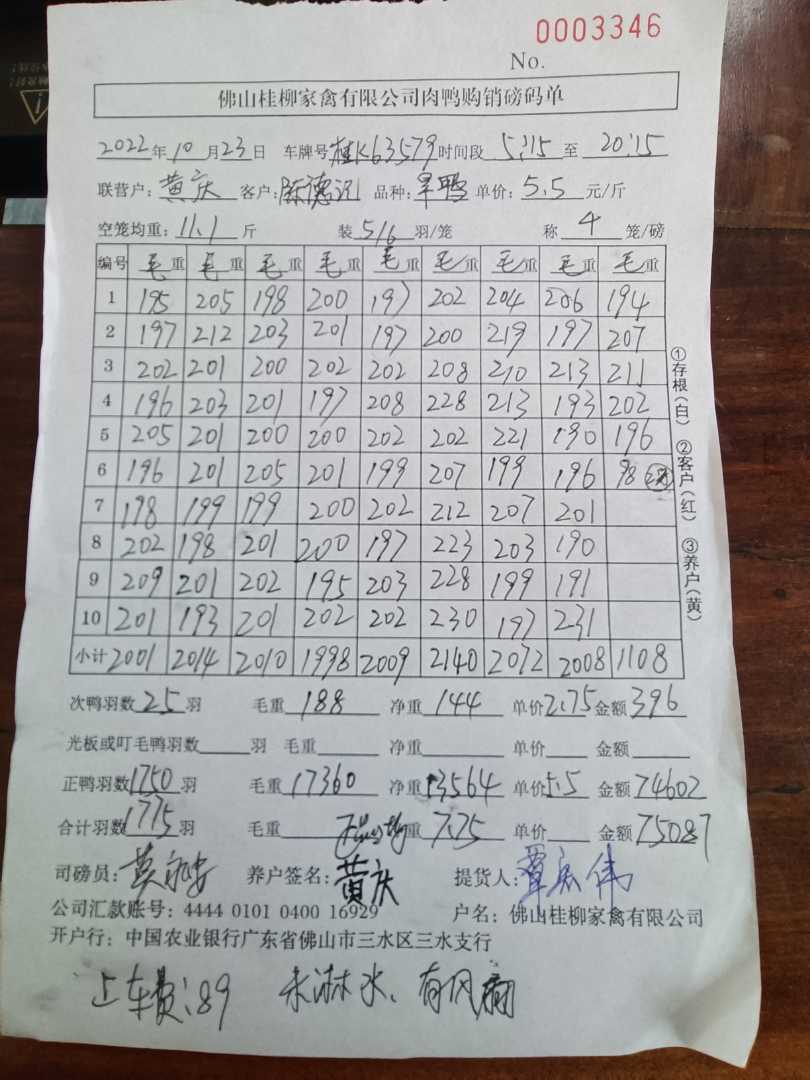 0003346
No.
佛山桂柳家禽有限公司肉鸭购销磅码单
2022年10月23日 车牌号桂K63579时间段5:15至20:15
联营户:黄庆 客户:陈德记 品种:旱鸭 单价:5.5元/斤
空笼均重:11.1斤 装5/6羽/笼 称4笼/磅
编号 毛重 毛重 毛重 毛重 毛重 毛重 毛重 毛重 毛重
1 195 205 198 200 197 202 204 206 194
2 197 212 203 201 197 200 219 197 207
3 202 201 200 202 202 208 210 213 211
4 196 203 201 197 208 228 213 193 202
5 205 201 200 200 202 202 221 190 196
6 196 201 205 201 199 207 199 196 98
7 198 199 199 200 202 212 207 201
8 202 198 201 200 197 223 203 190
9 209 201 202 195 203 228 199 191
10 201 193 201 202 202 230 197 231
小计 2001 2014 2010 1998 2009 2140 2072 2008 1108
①存根(白) ②客户(红) ③养户(黄)
次鸭羽数25羽 毛重188 净重144 单价2.75金额396
光板或叮毛鸭羽数 羽 毛重 净重 单价 金额
正鸭羽数1750羽 毛重17360 净重13564单价5.5金额74602
合计羽数1775羽 毛重 重7.75 单价 金额75087
司磅员: 养户签名:黄庆 提货人:覃庆伟
公司汇款账号:4444 0101 0400 16929 户名:佛山桂柳家禽有限公司
开户行:中国农业银行广东省佛山市三水区三水支行
上车费:89 未淋水、有风扇